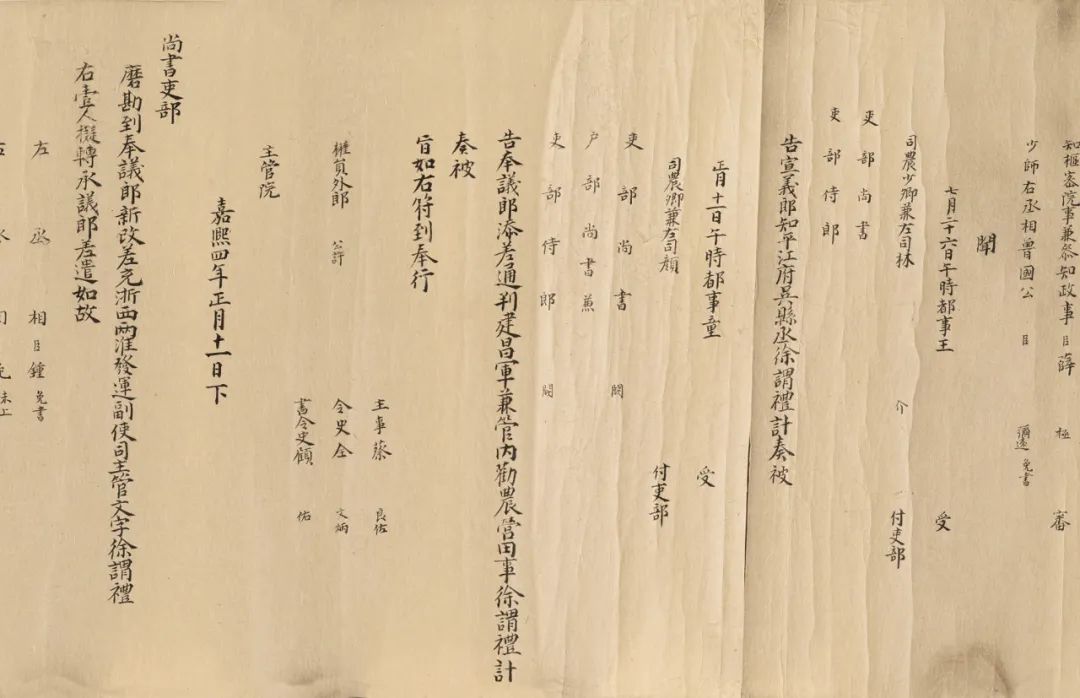 知樞密院事兼參知政事 臣 薛 極 審
少師右丞相魯國公 臣 彌遠 免書
聞
七月二十六日午時都事王 受
司農少卿兼左司林 介 付吏部
吏部尚書
吏部侍郎
告宣義郎知平江府吳縣丞徐謂禮計奏被
正月十一日午時都事童 受
司農卿兼左司顏 付吏部
吏部尚書 闕
戶部尚書兼
吏部侍郎 闕
告奉議郎添差通判建昌軍兼管內勸農營田事徐謂禮計
奏被
旨如右符到奉行
主事蔡 良佐
權員外郎 公許 令史仝 文炳
書令史顧 佑
主管院
嘉熙四年正月十一日下
尚書吏部
磨勘到奉議郎新改差充浙西兩淮發運副使司主管文字徐謂禮
右壹人擬轉承議郎差遣如故
左丞相 臣 鍾 免書